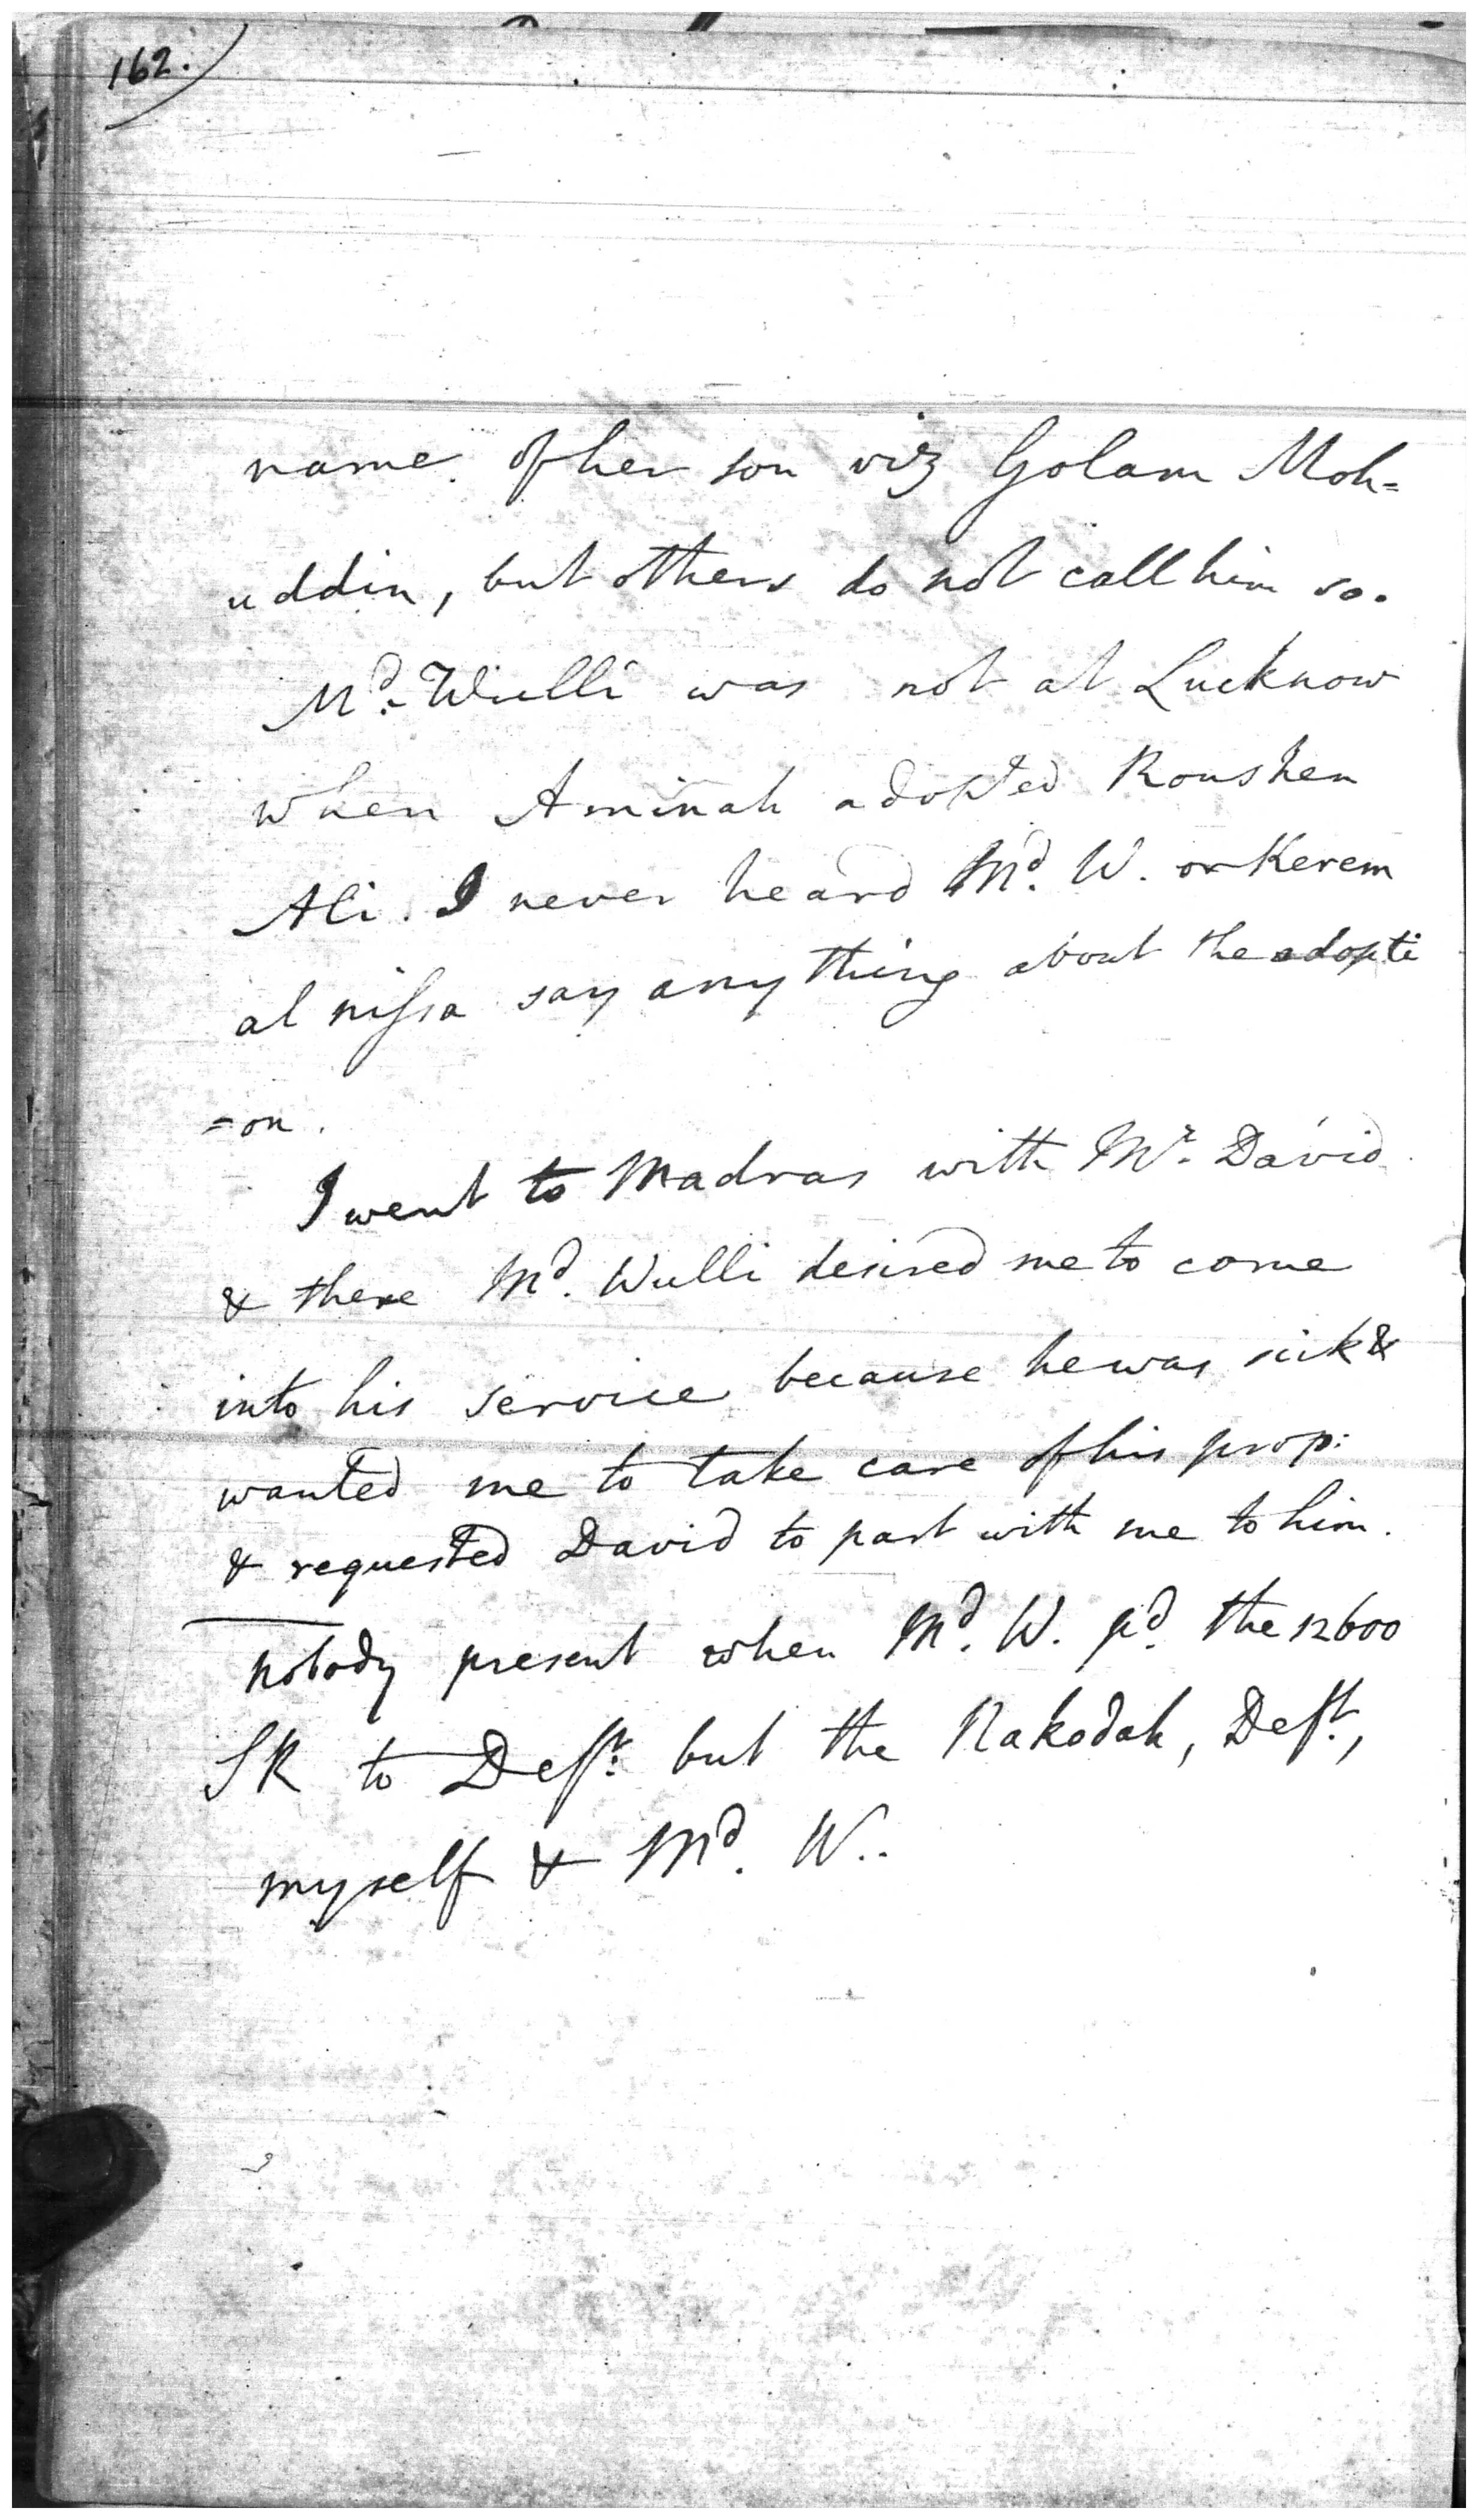 162.
name of her son viz Golam Moh=
uddin, but others do not call him so.
Md. Wulli was not at Lucknow
when Aminah adopted Roushen
Ali. I never heard Md. W. or Kerem
al nissa say any thing about the adopti
=on.
I went to Madras with Mr. David
& there Md. Wulli desired me to come
into his service because he was sick &
wanted me to take care of his prop:
& requested David to part with me to him.
nobody present when Md. W. pd. the 12600
SR to Deft. but the Nakodah, Deft.,
myself & Md. W..